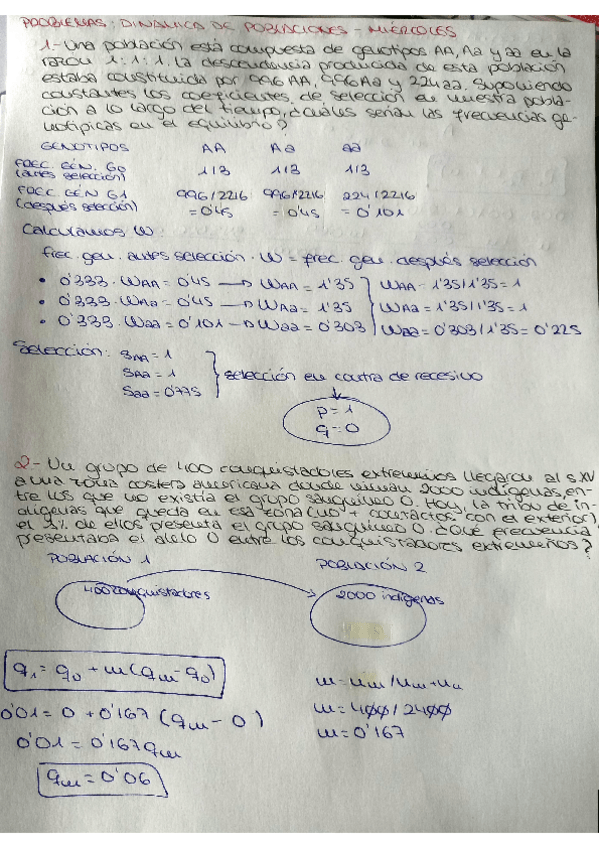 PROBLEMAS: DINÁMICA DE POBLACIONES - MIÉRCOLES
1.- Una población está compuesta de genotipos AA, Aa y aa en la
razón 1:1:1. La descendencia producida de esta población
estaba constituida por 996 AA, 996 Aa y 224 aa. Suponiendo
constantes los coeficientes de selección en nuestra pobla-
ción a lo largo del tiempo, ¿cuáles serían las frecuencias ge-
notípicas en el equilibrio?
GENOTIPOS AA Aa aa
FREC. GÉN. G0 1/3 1/3 1/3
(antes selección)
FREC GÉN G1 996/2216 996/2216 224/2216
(después selección) = 0'45 = 0'45 = 0'101
Calculamos W:
frec. gen. antes selección · W = frec. gen. después selección
• 0'333 · WAA = 0'45 → WAA = 1'35 WAA = 1'35/1'35 = 1
• 0'333 · WAa = 0'45 → WAa = 1'35 WAa = 1'35/1'35 = 1
• 0'333 · Waa = 0'101 → Waa = 0'303 Waa = 0'303/1'35 = 0'225
Selección: SAA = 1
SAa = 1 selección en contra de recesivo
Saa = 0'775
p = 1
q = 0
2.- Un grupo de 400 conquistadores extremeños llegaron al s.XV
a una zona costera americana donde vivían 2000 indígenas, en-
tre los que no existía el grupo sanguíneo O. Hoy, la tribu de in-
dígenas que queda en esa zona (no + contactos con el exterior),
el 1% de ellos presenta el grupo sanguíneo O. ¿Qué frecuencia
presentaba el alelo O entre los conquistadores extremeños?
POBLACIÓN 1 POBLACIÓN 2
400 conquistadores 2000 indígenas
q1 = q0 + m(qm - q0)
m = nm / nm + nn
0'01 = 0 + 0'167 (qm - 0)
m = 400 / 2400
0'01 = 0'167qm
m = 0'167
qm = 0'06